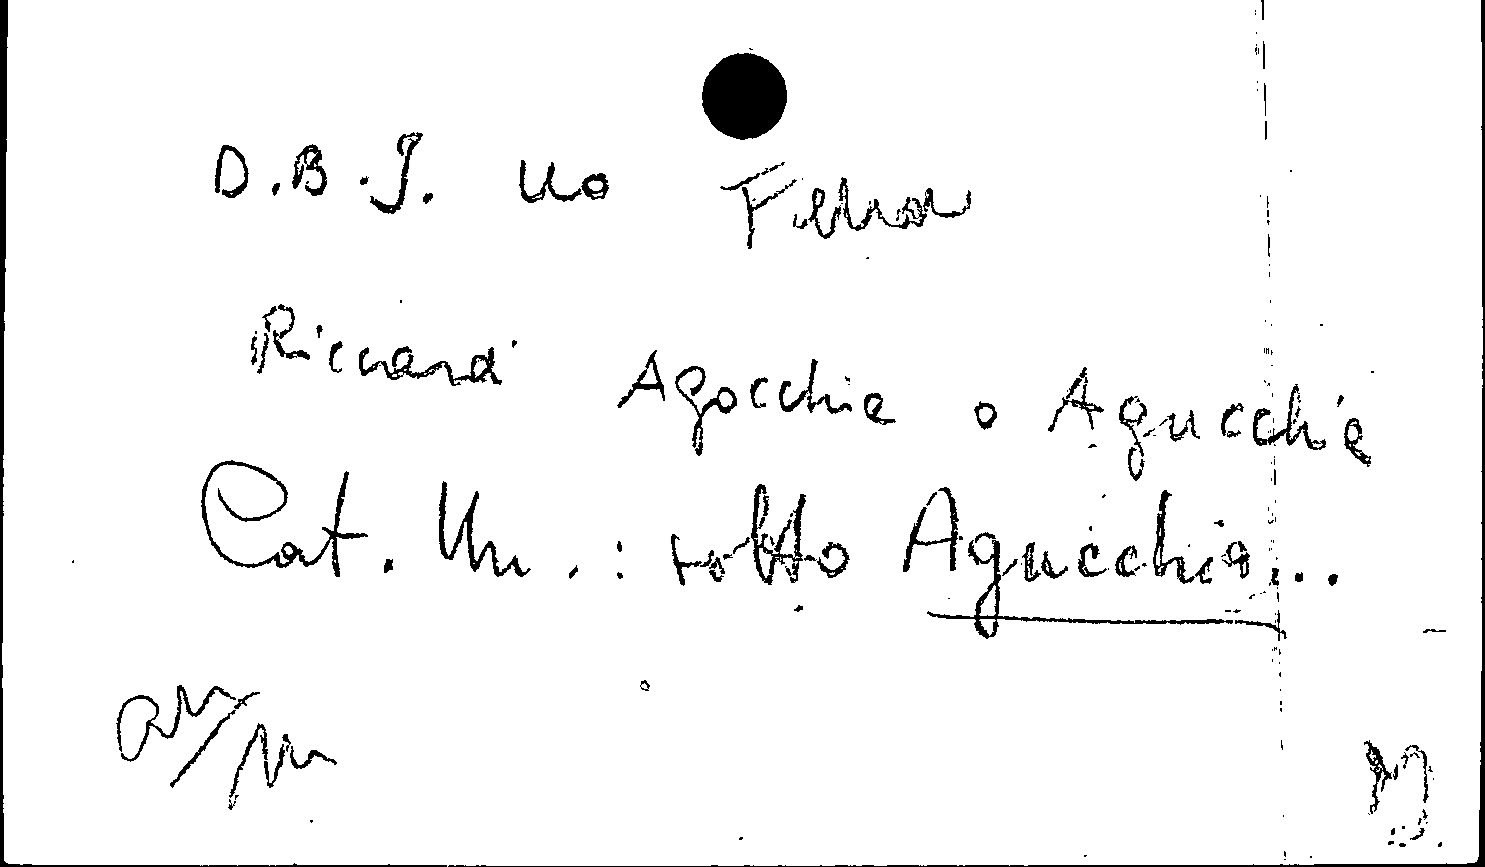 D.B.I. no Ferrar
Riccardi Agocchie o Agucchie
Cat. Un.: sotto Agucchia...